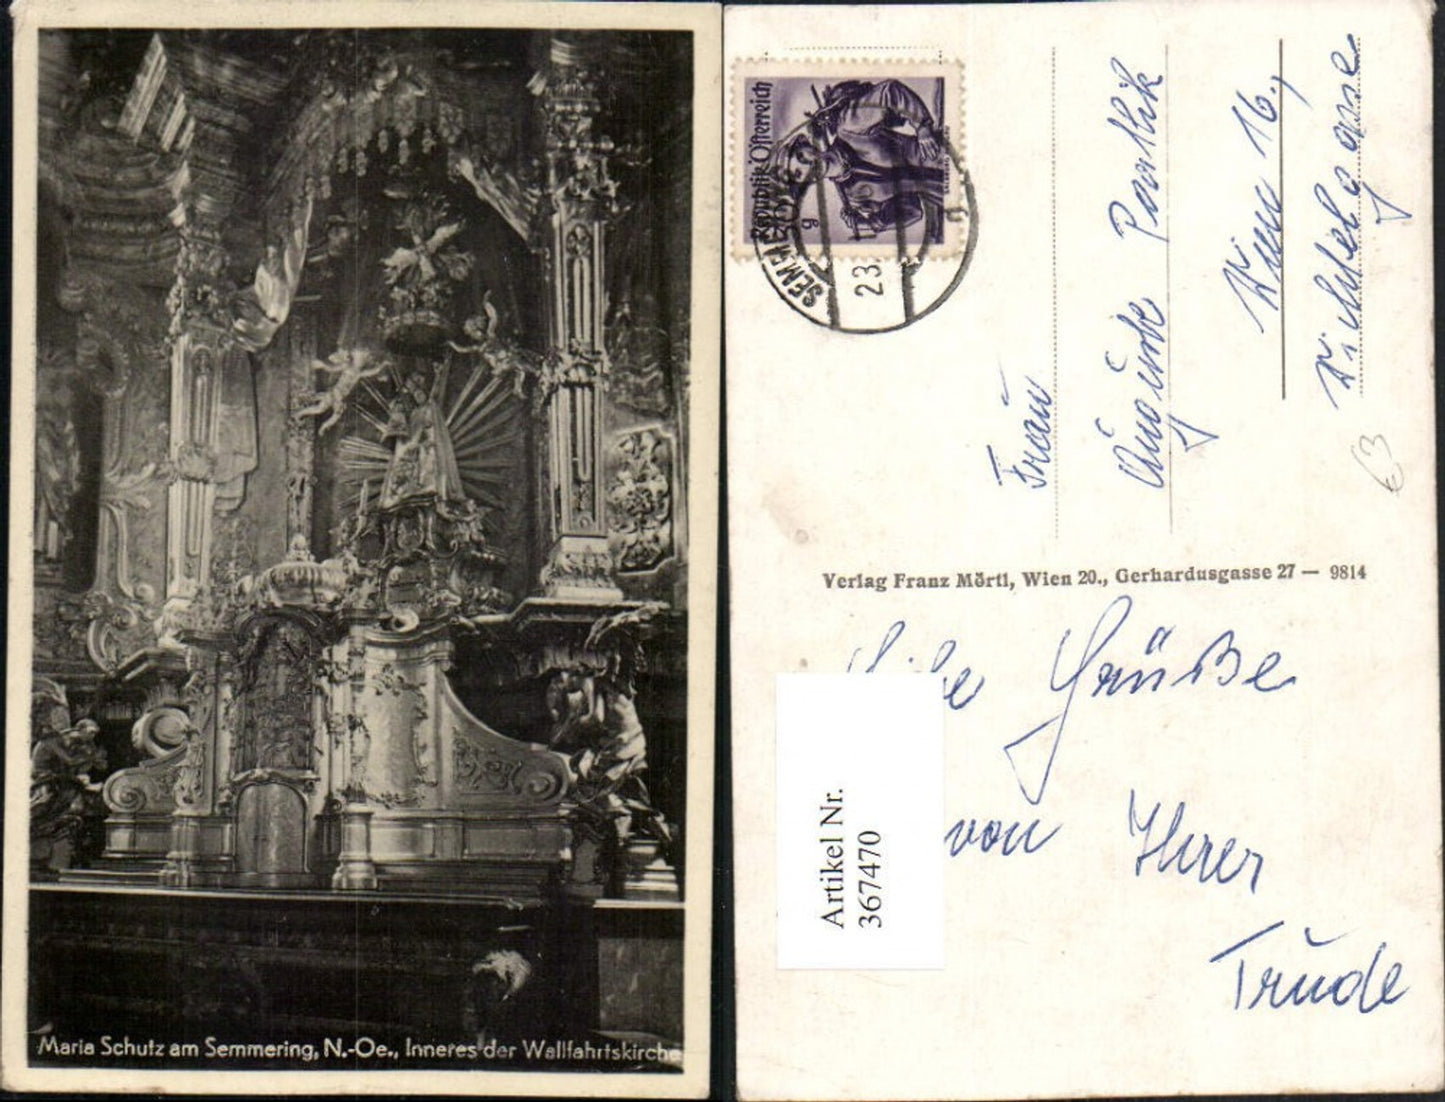 Maria Schutz am Semmering, N.-Oe., Inneres der Wallfahrtskirche
Republik Österreich
SEMME
23.
Frau
Wien 16.,
63
Verlag Franz Mörtl, Wien 20., Gerhardusgasse 27 — 9814
Grüße
von Ihrer
Trude
Artikel Nr.
367470